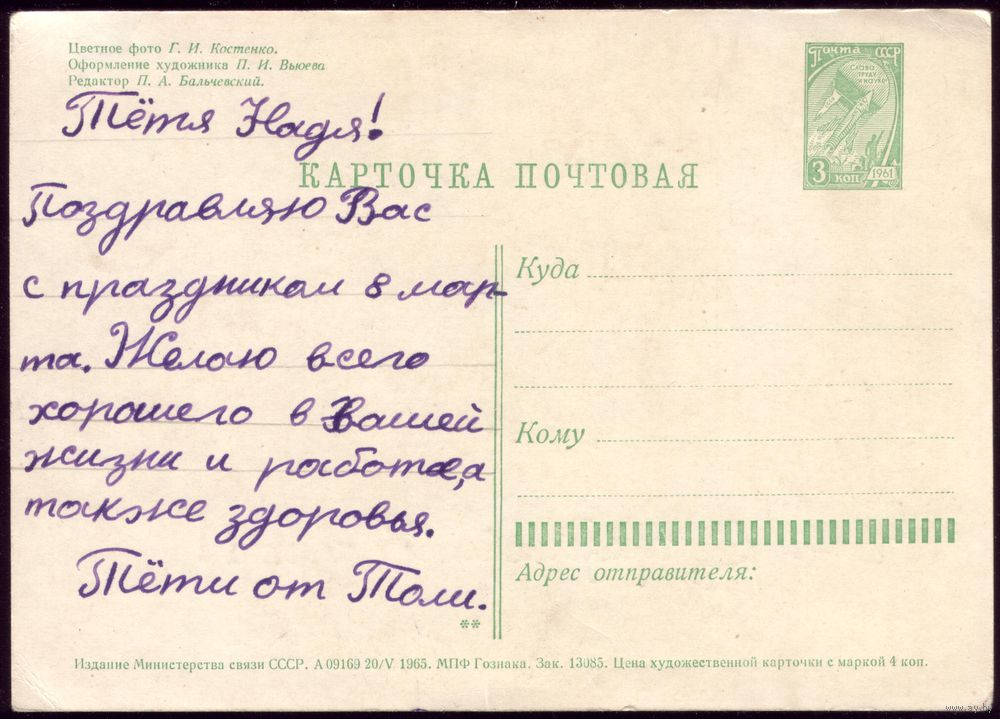 Цветное фото Г. И. Костенко.
Оформление художника П. И. Вьюева
Редактор П. А. Бальчевский.
Тётя Надя!
КАРТОЧКА ПОЧТОВАЯ
Почта СССР
Слава
труду
и науке
3 коп
1961
Поздравляю Вас
с праздником 8 мар-
та. Желаю всего
хорошего в Вашей
жизни и работе, а
также здоровья.
Тёти от Толи.
**
Куда
Кому
Адрес отправителя:
Издание Министерства связи СССР. А 09169 20/V 1965. МПФ Гознака. Зак. 13085. Цена художественной карточки с маркой 4 коп.
www.ay.by